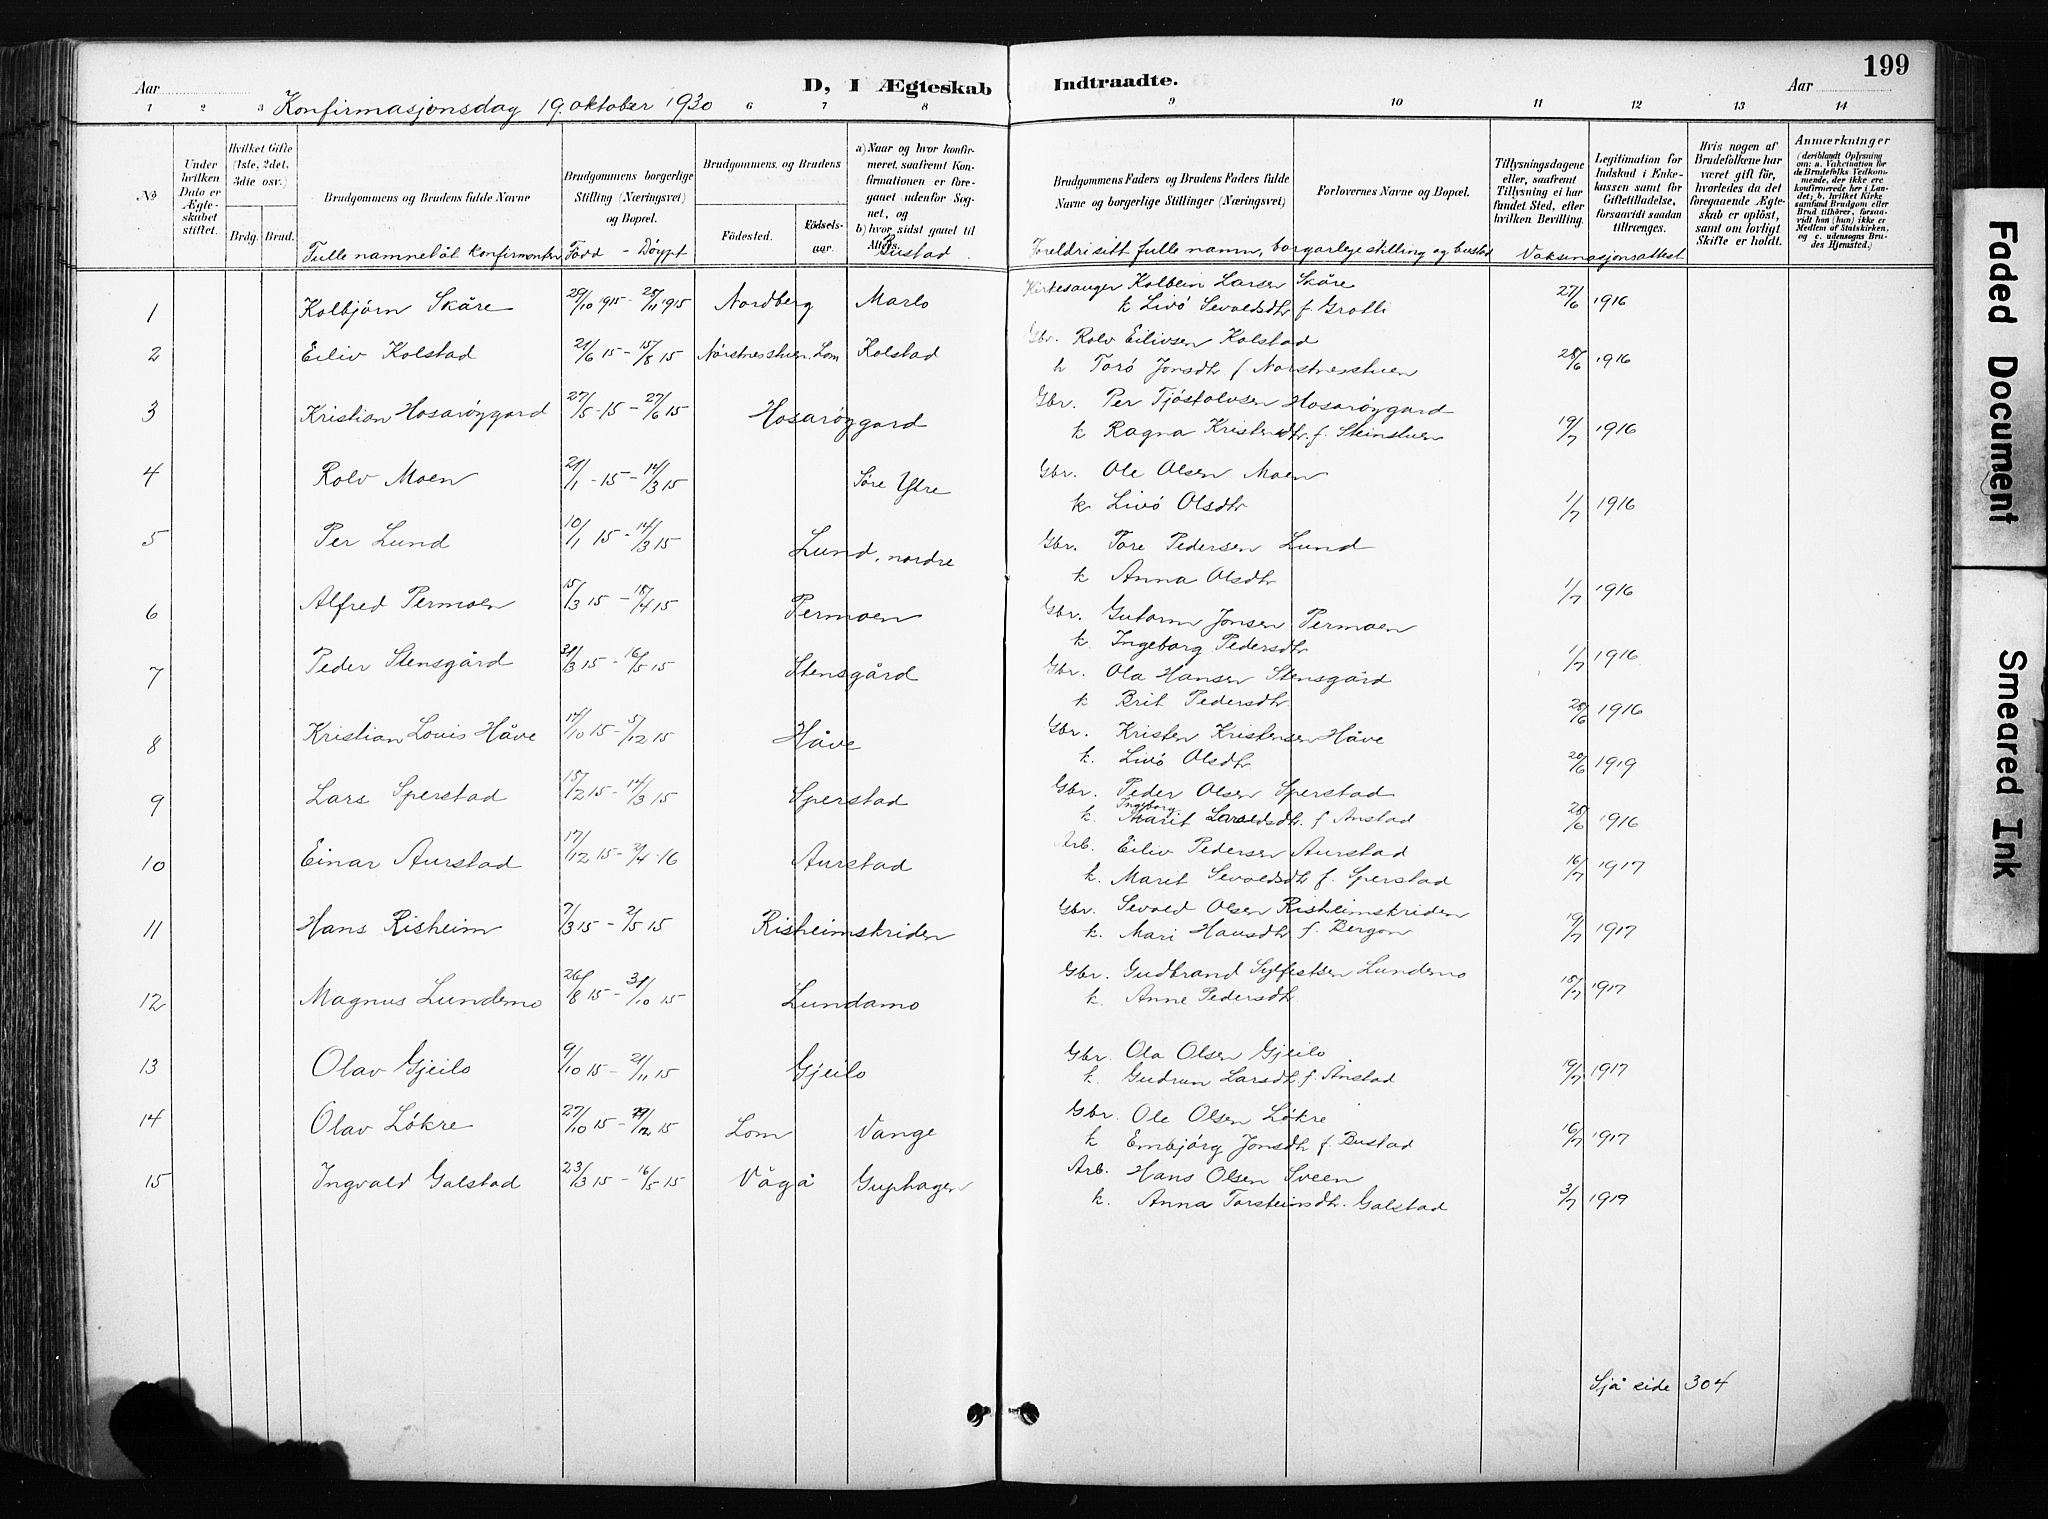 199
Aar
D, I Ægteskab Indtraadte.
Aar
Konfirmasjonsdag 19. oktober 1930
1 2 3 6 7 8 9 10 11 12 13 14
No
Under hvilken Dato er Ægteskabet stiftet.
Hvilket Gifte (1ste, 2det, 3die osv.)
Brdg. Brud.
Brudgommens og Brudens fulde Navne
Brudgommens borgerlige Stilling (Næringsvei) og Bopæl.
Brudgommens og Brudens
Födested.
Födselsaar.
a) Naar og hvor konfirmeret, saafremt Konfirmationen er foregaaet udenfor Sognet, og
b) hvor sidst gaaet til Alters.
Brudgommens Faders og Brudens Faders fulde Navne og borgerlige Stillinger (Næringsvei)
Forlovernes Navne og Bopæl.
Tillysningsdagene eller, saafremt Tillysning ei har fundet Sted, efter hvilken Bevilling.
Legitimation for Indskud i Enkekassen samt for Giftetilladelse, forsaavidt saadan tiltrænges.
Hvis nogen af Brudefolkene har været gift før, hvorledes da det foregaaende Ægteskab er oplöst, samt om lovligt Skifte er holdt.
Anmærkninger (deriblandt Oplysning om: a. Vakcination for de Brudefolks Vedkommende, der ikke ere konfirmerede her i Landet; b. hvilket Kirkesamfund Brudgom eller Brud tilhörer, forsaavidt han (hun) ikke er Medlem af Statskirken, og c. udensogns Brudes Hjemsted.)
Fulle namnet åt konfirmanten Fødd - Døypt Bustad Foreldri sitt fulle namn, borgarlege stilling og bustad Vaksinasjonsattest
1 Kolbjørn Skåre 29/10 1915 - 28/11 1915 Nordberg Marlo Kirkesanger Kolbein Larsen Skåre 27/6 1916
k Livó Sevaldsdtr f. Grotli
2 Eiliv Kolstad 21/6 15 - 15/8 15 Nørstnesstuen, Lom Kolstad Gbr. Rolv Eilivsen Kolstad 28/6 1916
k Toró Jonsdtr f Norstnesstuen
3 Kristian Hosarøygard 27/5 - 15 - 27/6 15 Hosarøygard Gbr. Per Tjøstolvsen Hosarøygard 19/7 1916
k Ragna Kristensdtr. f. Steinstuen
4 Rolv Moen 21/1 - 15 - 14/3 15 Søre Ytre Gbr. Ole Olsen Moen
k Livó Olsdtr 1/7 1916
5 Per Lund 10/1 15 - 14/3 15 Lund, nordre Gbr. Tore Pedersen Lund
k Anna Olsdtr 1/7 1916
6 Alfred Permoen 15/3 15 - 18/4 15 Permoen Gbr. Gutorm Jonsen Permoen
k. Ingeborg Pedersdtr 1/7 1916
7 Peder Stensgård 31/3 15 - 16/5 15 Stensgård Gbr. Ola Hansen Stensgård
k Brit Pedersdtr. 28/6 1916
8 Kristian Louis Håve 14/10 15 - 5/12 15 Håve Gbr. Kristen Kristensen Håve
k. Livó Olsdtr 20/6 1919
9 Lars Sperstad 15/2 15 - 14/3 15 Sperstad Gbr. Peder Olsen Sperstad
Ingeborg
k. Marit Larsdtr. f Anstad 28/6 1916
10 Einar Aurstad 17/12 15 - 2/4 - 16 Aurstad Arb. Eiliv Pedersen Aurstad
k. Marit Sevaldsdtr f. Sperstad 16/7 1917
11 Hans Risheim 7/3 15 - 2/5 15 Risheimskriden Gbr. Sevald Olsen Risheimskriden
k. Mari Hansdtr f. Bergom 19/7 1917
12 Magnus Lundemo 26/8 15 - 31/10 15 Lundamo Gbr. Gudbrand Sylfestsen Lundemo
k. Anne Pedersdtr 18/7 1917
13 Olav Gjeilo 9/10 15 - 21/11 15 Gjeilo Gbr. Ola Olsen Gjeilo
k. Gudrun Larsdtr f. Anstad 19/7 1917
14 Olav Løkre 27/10 15 - /12 15 Lom Vange Gbr. Ole Olsen Løkre
k Embjørg Jonsdtr f. Bustad 16/7 1917
15 Ingvald Galstad 23/3 15 - 16/5 15 Vågå Guphagen Arb. Hans Olsen Sveen
k. Anna Torsteinsdtr. Galstad 3/7 1919
Sjå side 304
Faded Document
Smeared Ink